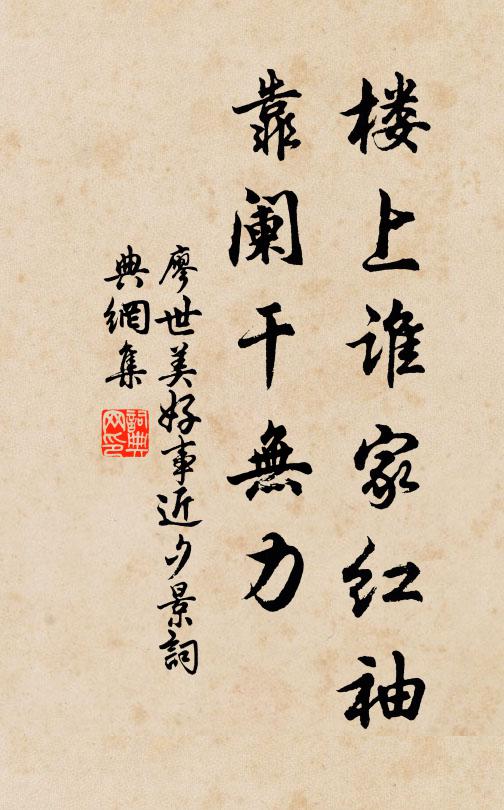 楼上谁家红袖
靠阑干無力
廖世美好事近夕景詞
典網集
詞典
网印